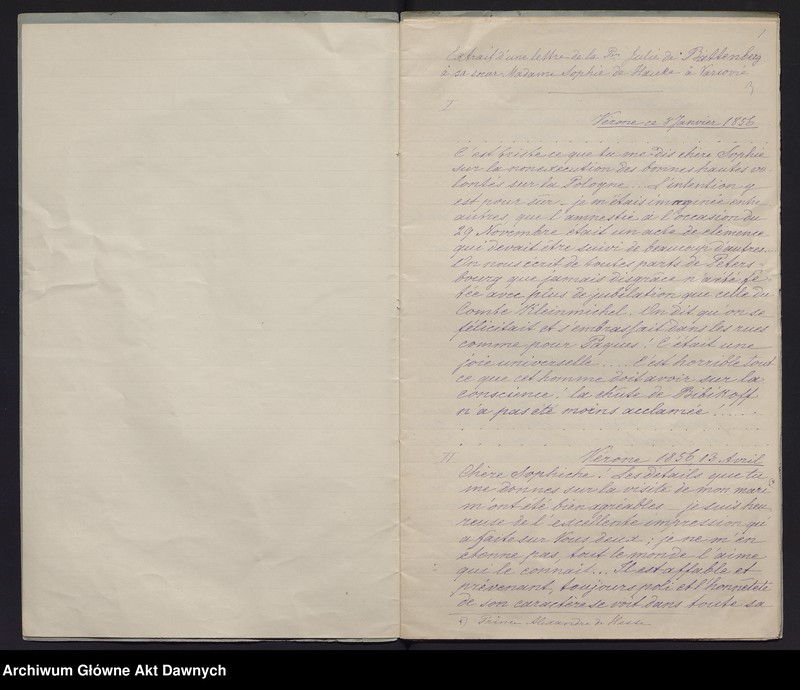 1
Extrait d'une lettre de la Psse Julie de Battenberg
à sa sœur Madame Sophie de Hauke à Varsovie
I
Vérone ce 8 Janvier 1856
C'est triste ce que tu me dis chère Sophie
sur la nonexécution des bonnes hautes vo-
lontés sur la Pologne... L'intention y
est pour sur - je m'étais imaginée entre
autres, que l'amnestie à l'occasion du
29 Novembre était un acte de clémence
qui devait être suivi de beaucoup d'autres...
On nous écrit de toutes parts de Peters-
bourg que jamais disgrâce n'a été fê-
tée avec plus de jubilation que celle du
Comte Kleinmichel. On dit qu'on se
félicitait et s'embrassait dans les rues
comme pour Pâques! C'était une
joie universelle.... C'est horrible tout
ce que cet homme doit avoir sur la
conscience! la chute de Bibikoff
n'a pas été moins acclamée!.....
II
Vérone 1856 13 Avril
Chère Sophiche! Les détails que tu
me donnes sur la visite de mon mari
m'ont été bien agréables - je suis heu-
reuse de l'excellente impression qu'il
a faite sur Vous deux; je ne m'en
étonne pas, tout le monde l'aime
qui le connait... Il est affable et
prévenant, toujours poli et l'honnêteté
de son caractère se voit dans toute sa
Prince Alexandre de Hesse
Archiwum Główne Akt Dawnych